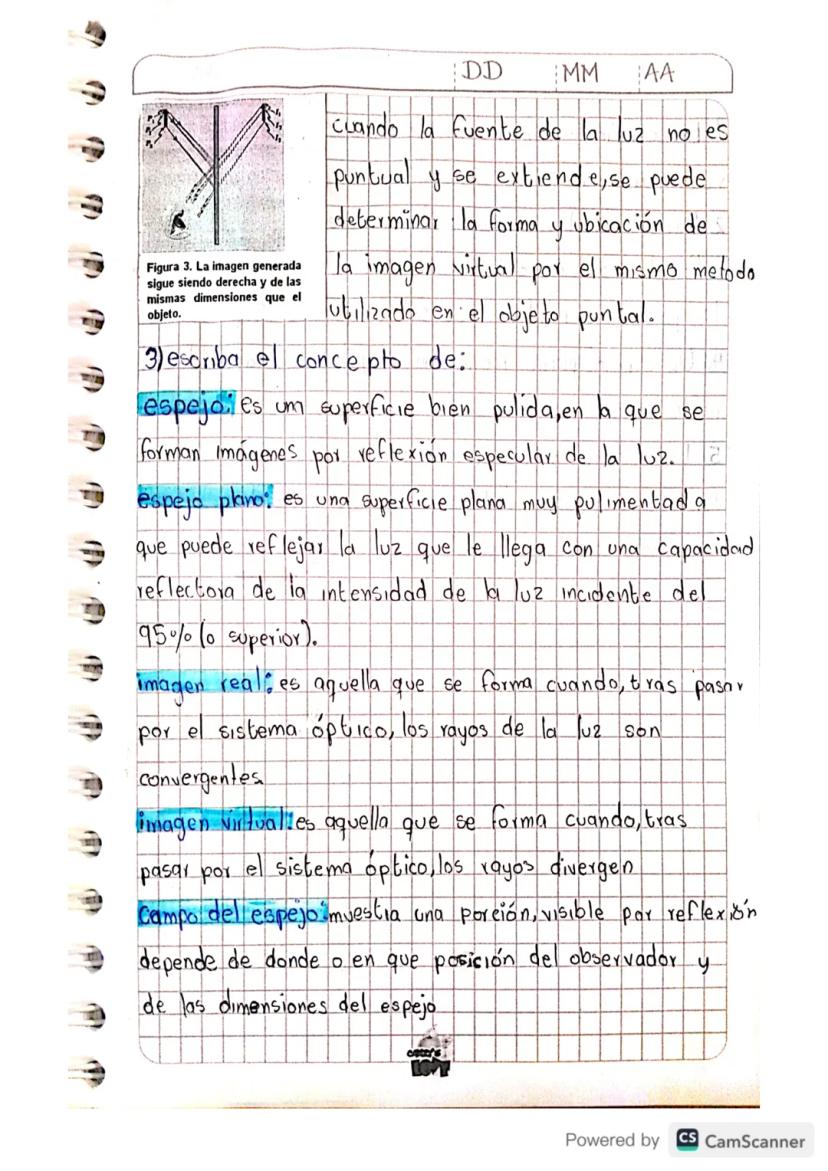 DD MM AA
cuando la fuente de la luz no es
puntual y se extiende, se puede
determinar la forma y ubicación de
la imagen virtual por el mismo metodo
utilizado en el objeto puntal.
Figura 3. La imagen generada
sigue siendo derecha y de las
mismas dimensiones que el
objeto.
3) escriba el concepto de:
espejo: es um superficie bien pulida, en la que se
forman imágenes por reflexión especular de la luz.
espejo plano: es una superficie plana muy pulimentada
que puede reflejar la luz que le llega con una capacidad
reflectora de la intensidad de la luz incidente del
95% (o superior).
imagen real: es aquella que se forma cuando, tras pasar
por el sistema óptico, los rayos de la luz son
convergentes
imagen virtual: es aquella que se forma cuando, tras
pasar por el sistema óptico, los rayos divergen
Campo del espejo: muestra una poreión, visible por reflexión
depende de donde o en que posición del observador y
de las dimensiones del espejo
Powered by CS CamScanner